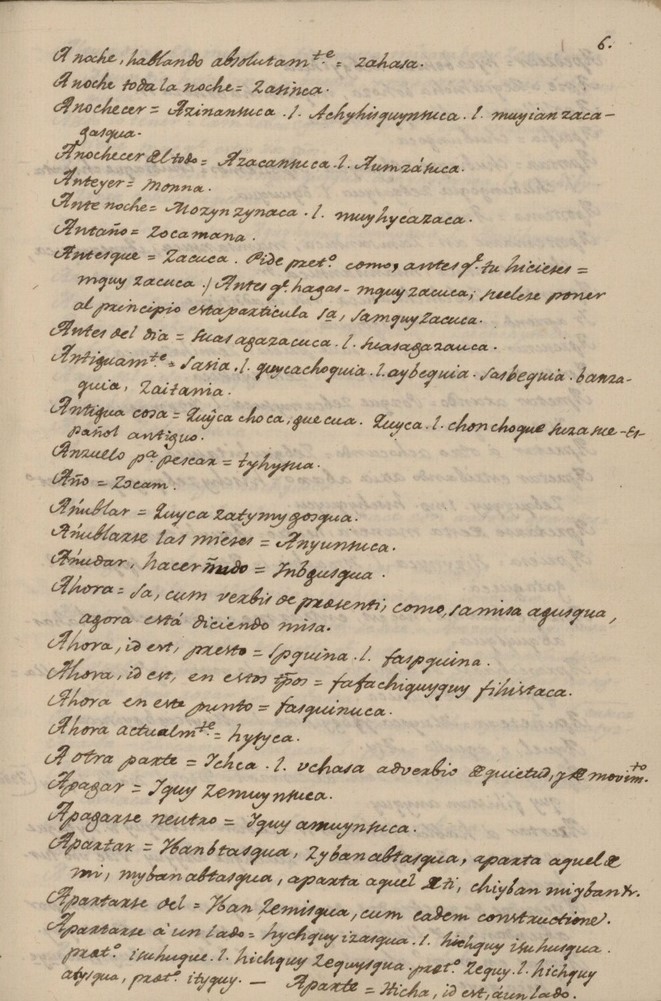 6.
A noche, hablando absolutamte. = zahasa.
A noche toda la noche = Zasinca.
Anochecer = Azinansuca . l. Achyhisquynsuca . l. muyian zaca-
gasqua.
Anochecer del todo = Azacansuca . l. Aumzásuca.
Anteyer = monna.
Ante noche = Mozynzynaca . l. muyhycazaca.
Antaño = Zocamana.
Antesque = Zacuca. Pide preto. como, antes q. tu hicieses =
mquy zacuca / Antes q. hagas - mquy zacuca; suelese poner
al principio esta particula sa, samquyzacuca.
Antes del dia = suasagazacuca . l. suasagazauca.
Antiguamte. = sasia . l. guycachoquia . l. aybequia . sasbequia . banza-
guia, zaitania.
Antigua cosa = Quyca choca, guecua. Quyca . l. chonchoque suza sue - Es-
pañol antiguo.
Anzuelo pa. pescar = tyhysua.
Año = Zocam.
Añublar = Quyca zatymygosqua.
Añublarse las mieses = Anyunsuca.
Añudar, hacer ñudo = Inbgusqua.
Ahora = sa, cum verbis de præsenti; como, sa misa agusqua,
agora está diciendo misa.
Ahora, id est, presto = spquina . l. faspquina.
Ahora, id est, en estos tpos = fafachiquyquy fihistaca.
Ahora en este punto = fasquinuca.
Ahora actualmte. = hysyca.
A otra parte = Ichca . l. vchasa adverbio de quietud, y de movimto.
Apagar = Iquy zemuynsuca.
Apagarse neutro = Iquy amuynsuca.
Apartar = Yanbtasqua, Zybanabtasqua, aparta aquel de
mi, mybanabtasqua, aparta aquel de ti, chiyban miyban &.
Apartarse del = Yan zemisqua, cum eadem constructione.
Apartarse á un lado = hychquy izasqua . l. hichquy isuhusqua.
preto. isuhuque . l. hichquy zequysqua . preto. zequy . l. hichquy
atysqua, preto. ityquy. — Aparte = Hicha, id est, á un lado.